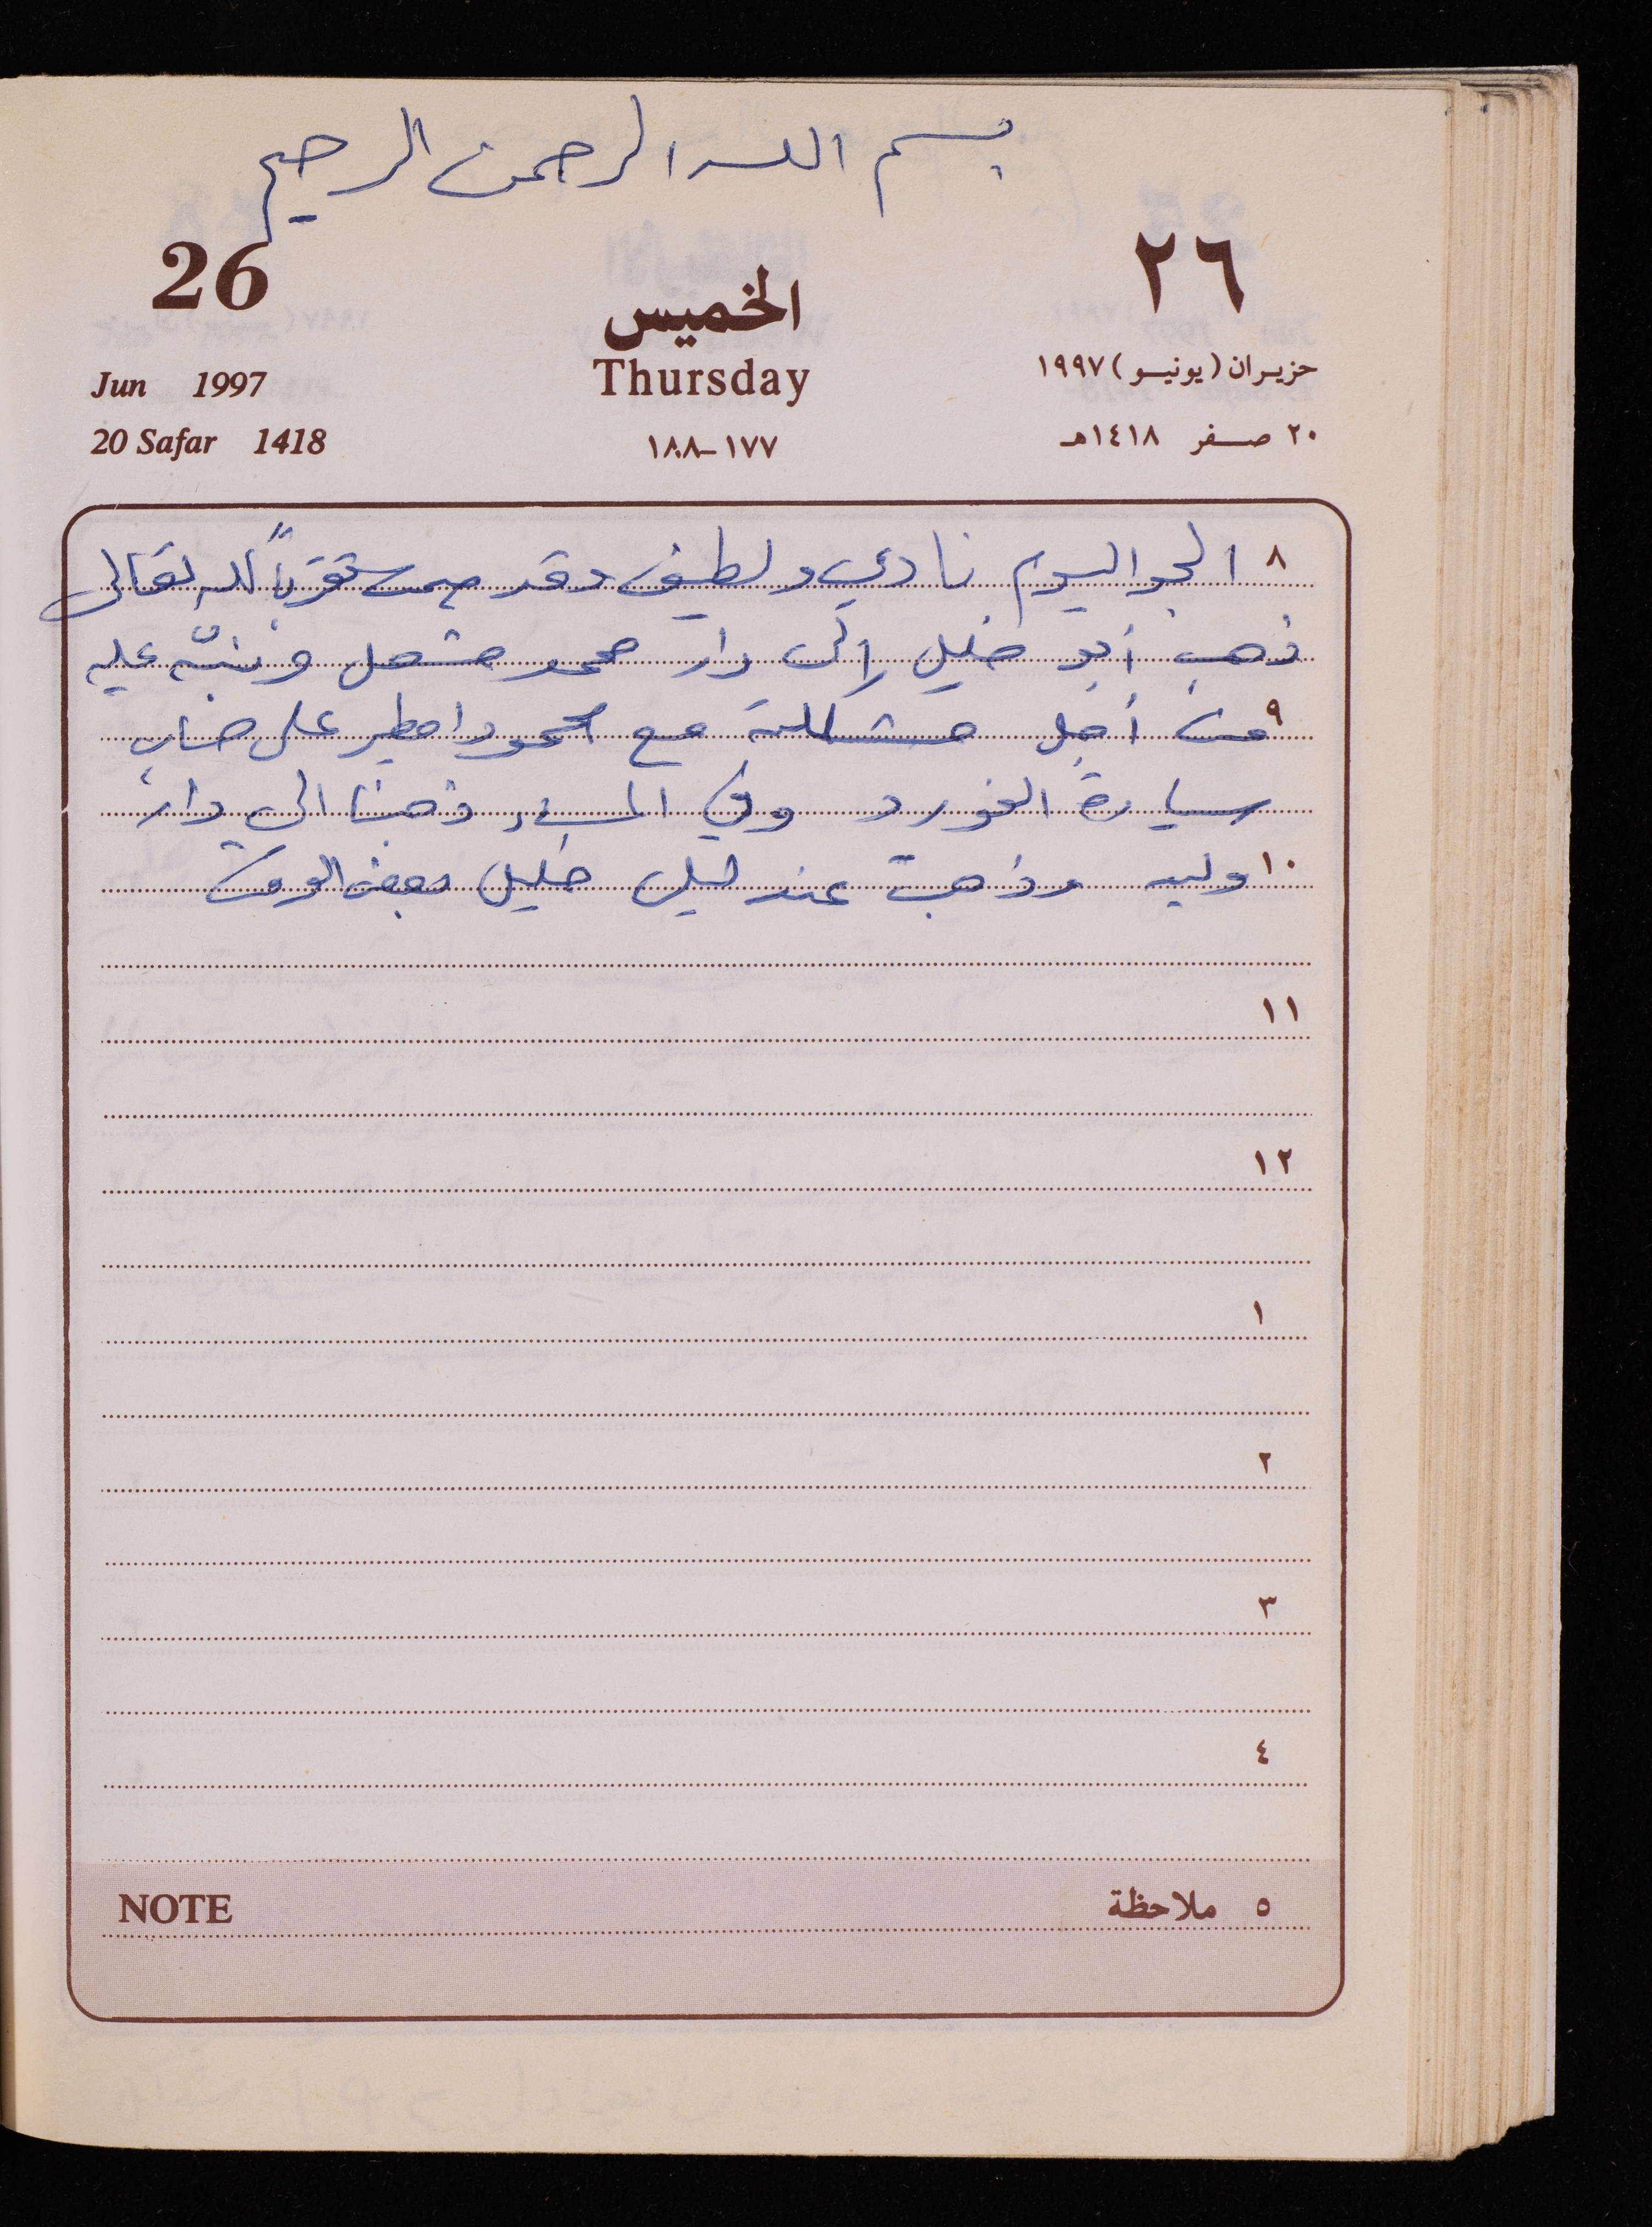 بسم الله الرحمن الرحيم
26
٢٦
الخميس
Thursday
Jun 1997
حزيران (يونيو) ١٩٩٧
20 Safar 1418
١٧٧-١٨٨
٢٠ صفر ١٤١٨هـ
٨ الجو اليوم نادي ولطيف وقد صمت تقرباً لله تعالى
ذهب أبو خليل إلى دار محمد مشعل ونبّه عليه
٩ من أجل مشكلة مع محمود امطير على حساب
سيارة الفورد وفي المساء ذهبنا الى دار
١٠ وليد وذهبت عند ليلى خليل بعض الوقت
١١
١٢
١
٢
٣
٤
NOTE
٥ ملاحظة